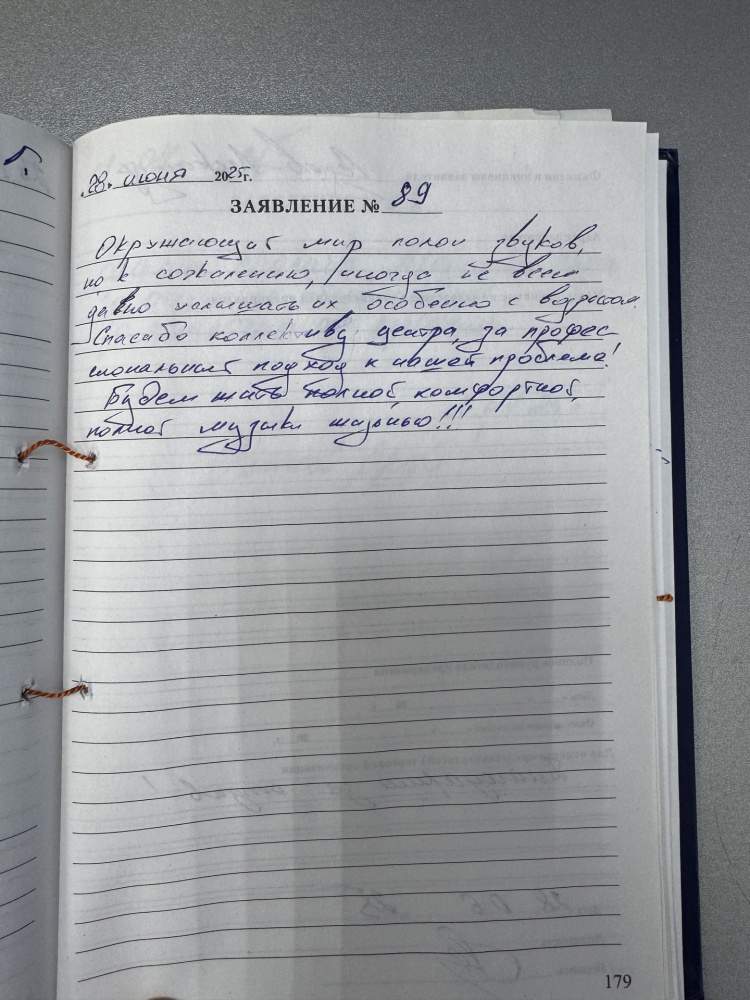 28. июня 2025 г.
ЗАЯВЛЕНИЕ № 89
Окружающий мир полон звуков,
но к сожалению, иногда не всем
дано услышать их особенно с возрастом.
Спасибо коллективу центра, за профес-
сиональный подход к нашей проблеме!
Будем жить полной, комфортной,
полной музыки жизнью!!!
179